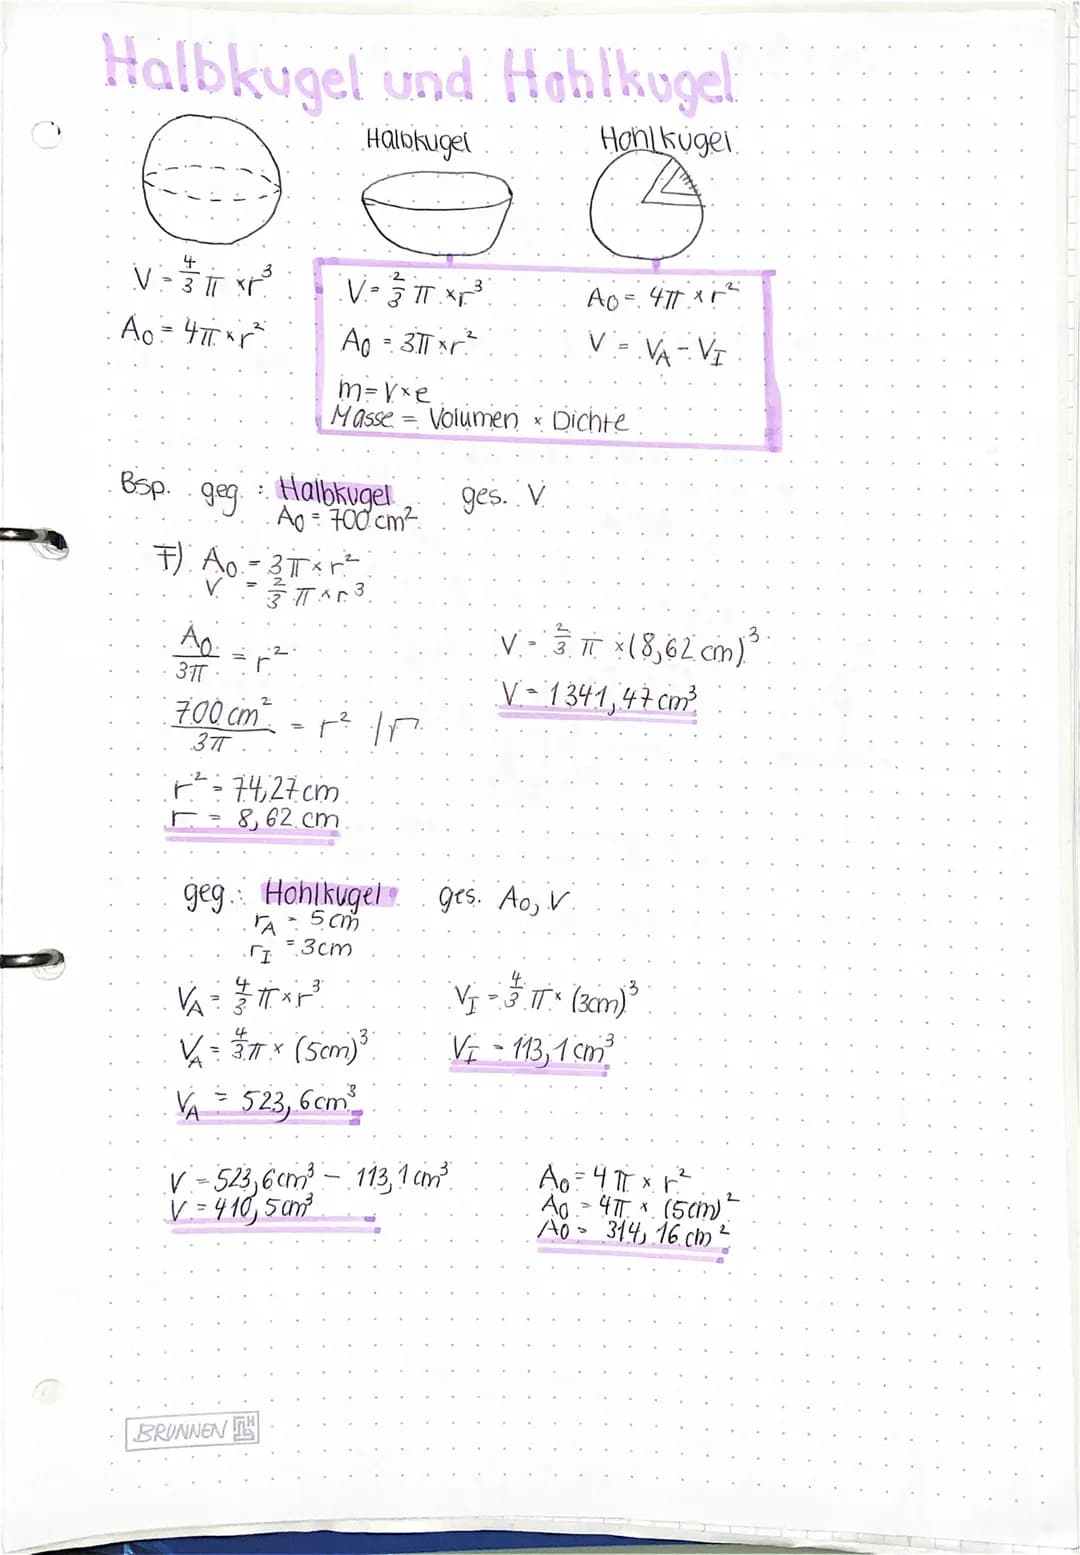 Halbkugel und Hohlkugel
Halbkugel
Hohlkugel
V = 4/3 π × r³
A₀ = 4π × r²
V = 2/3 π × r³
A₀ = 3π × r²
m = V × e
Masse = Volumen × Dichte
A₀ = 4π × r²
V = V_A - V_I
Bsp. geg.: Halbkugel ges. V
A₀ = 700 cm²
F) A₀ = 3π × r²
V = 2/3 π × r³
A₀/3π = r²
700 cm²/3π = r² /√
r² = 74,27 cm
r = 8,62 cm
V = 2/3 π × (8,62 cm)³
V = 1341,47 cm³
geg.: Hohlkugel ges. A₀, V
r_A = 5 cm
r_I = 3cm
V_A = 4/3 π × r³
V_A = 4/3 π × (5cm)³
V_A = 523,6 cm³
V_I = 4/3 π × (3cm)³
V_I = 113,1 cm³
V = 523,6 cm³ – 113,1 cm³
V = 410,5 cm³
A₀ = 4π × r²
A₀ = 4π × (5cm)²
A₀ = 314,16 cm²
BRUNNEN